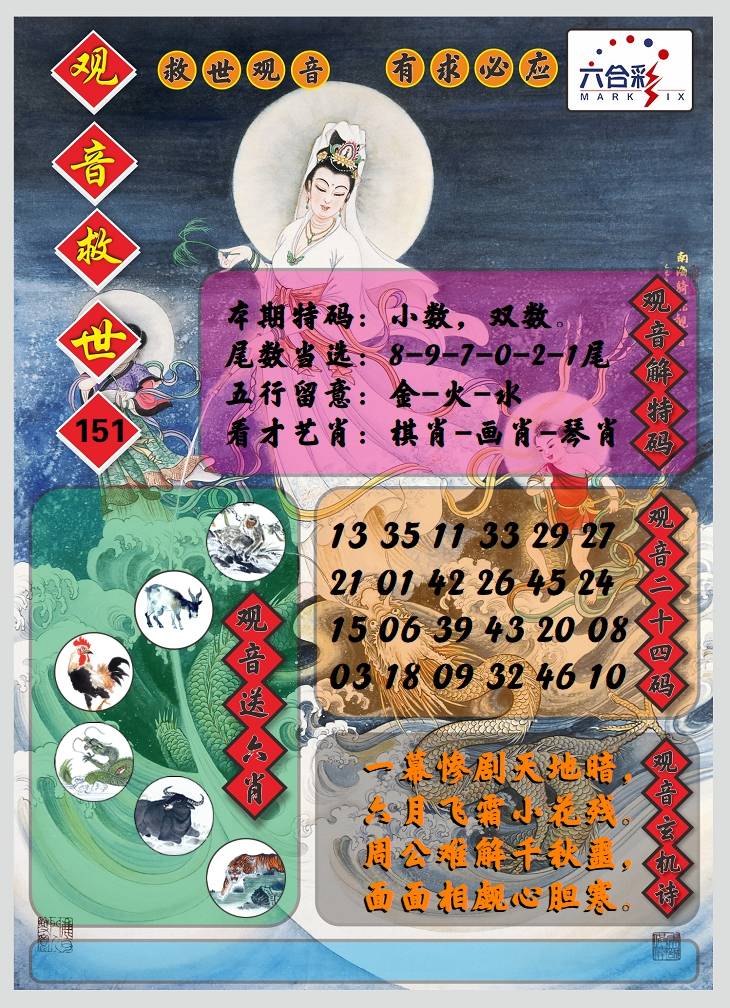 观音救世
151
救世观音 有求必应
六合彩
MARK SIX
观音解特码
本期特码：小数，双数。
尾数当选：8-9-7-0-2-1尾
五行留意：金-火-水
看才艺肖：棋肖-画肖-琴肖
观音送六肖
观音二十四码
13 35 11 33 29 27
21 01 42 26 45 24
15 06 39 43 20 08
03 18 09 32 46 10
观音玄机诗
一幕惨剧天地暗，
六月飞霜小花残。
周公难解千秋噩，
面面相觑心胆寒。